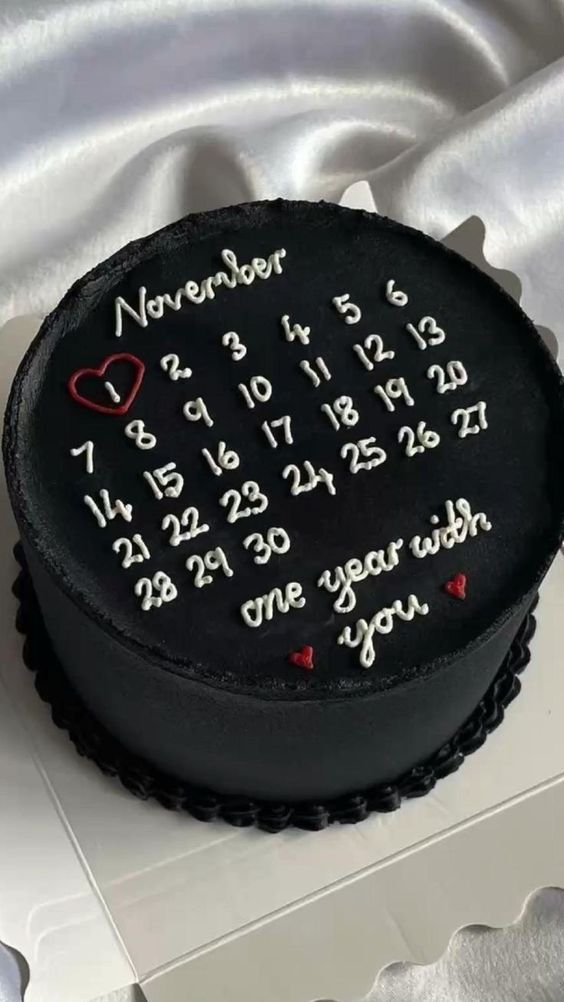 November
1 2 3 4 5 6
7 8 9 10 11 12 13
14 15 16 17 18 19 20
21 22 23 24 25 26 27
28 29 30
one year with
you